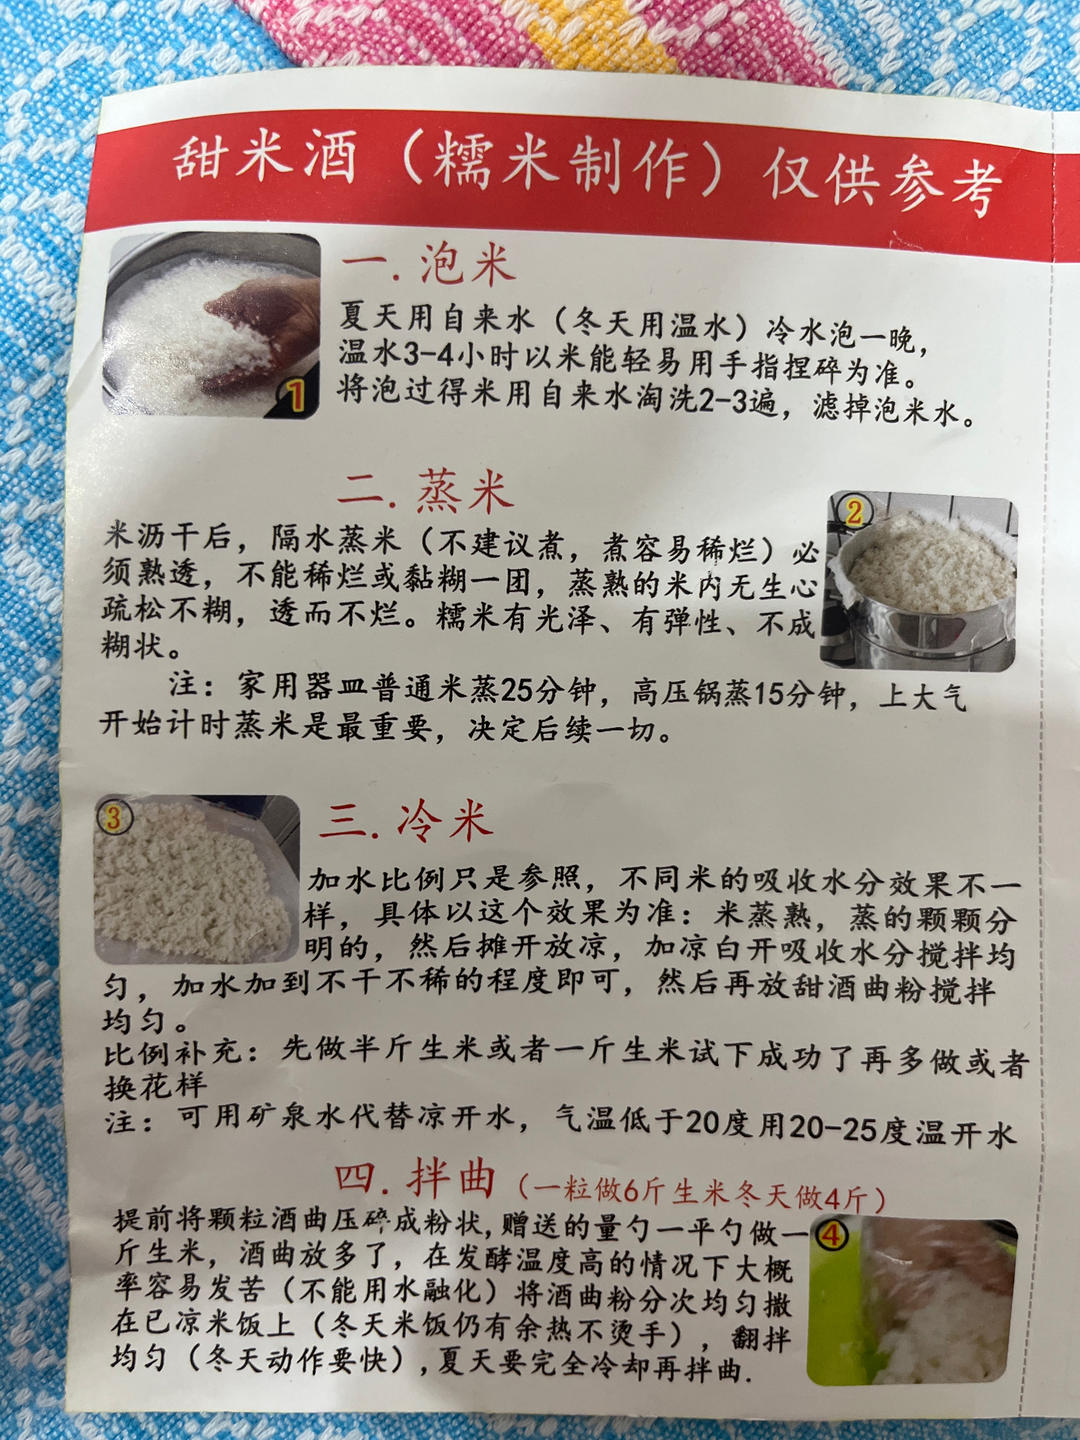 甜米酒（糯米制作）仅供参考
一.泡米
夏天用自来水（冬天用温水）冷水泡一晚，
温水3-4小时以米能轻易用手指捏碎为准。
将泡过得米用自来水淘洗2-3遍，滤掉泡米水。
1
二.蒸米
米沥干后，隔水蒸米（不建议煮，煮容易稀烂）必
须熟透，不能稀烂或黏糊一团，蒸熟的米内无生心
疏松不糊，透而不烂。糯米有光泽、有弹性、不成
糊状。
注：家用器皿普通米蒸25分钟，高压锅蒸15分钟，上大气
开始计时蒸米是最重要，决定后续一切。
2
3
三.冷米
加水比例只是参照，不同米的吸收水分效果不一
样，具体以这个效果为准：米蒸熟，蒸的颗颗分
明的，然后摊开放凉，加凉白开吸收水分搅拌均
匀，加水加到不干不稀的程度即可，然后再放甜酒曲粉搅拌
均匀。
比例补充：先做半斤生米或者一斤生米试下成功了再多做或者
换花样
注：可用矿泉水代替凉开水，气温低于20度用20-25度温开水
四.拌曲（一粒做6斤生米冬天做4斤）
提前将颗粒酒曲压碎成粉状,赠送的量勺一平勺做一
斤生米，酒曲放多了，在发酵温度高的情况下大概
率容易发苦（不能用水融化）将酒曲粉分次均匀撒
在已凉米饭上（冬天米饭仍有余热不烫手），翻拌
均匀（冬天动作要快）,夏天要完全冷却再拌曲.
4